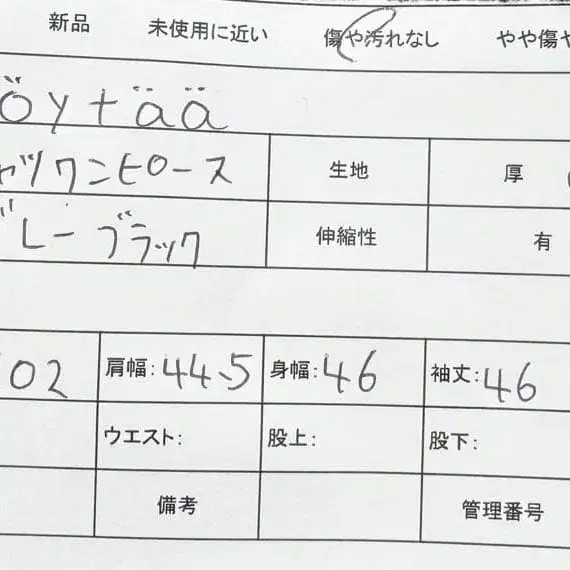 新品 未使用に近い 傷や汚れなし やや傷や
öytää
ャツワンピロース 生地 厚
グレーブラック 伸縮性 有
102 肩幅:44.5 身幅:46 袖丈:46
ウエスト: 股上: 股下:
備考 管理番号